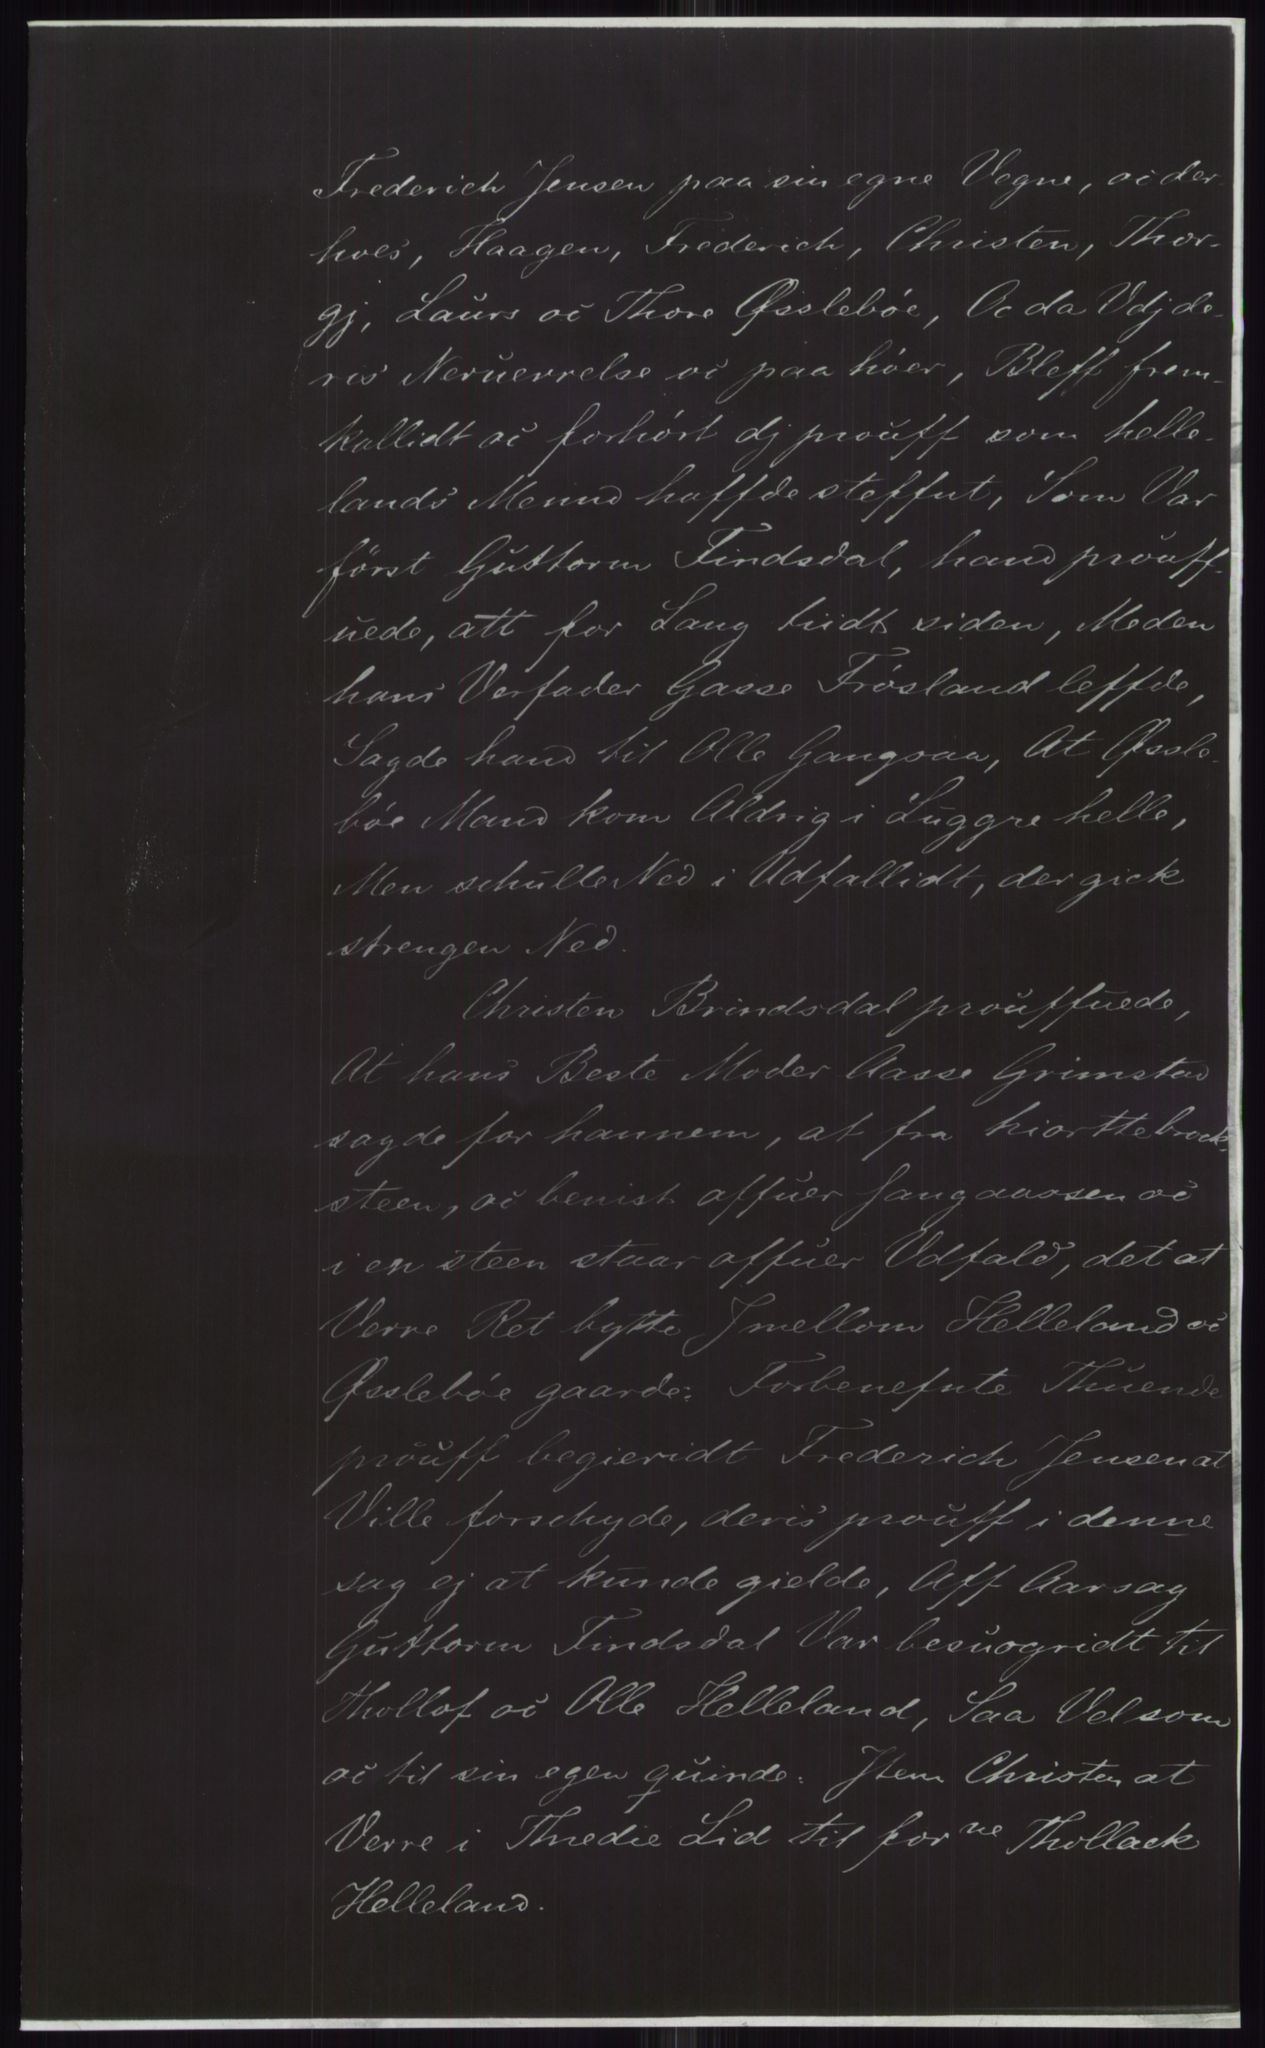 Frederich Jensen paa sin egne Vegne, oc der-
hoes, Haagen, Frederich, Christen, Thor-
gj, Laurs oc Thore Øsslebøe, Oc da Vdj de-
ris Neruerrelse oc paa høer, Bleff frem-
kallidt oc forhørt dj prouff som helle-
lands Mennd haffde steffnt, Som Var
først Guttorm Findsdal, hand prouff-
uede, att for Lang tiidt siden, Meden
hans Verfader Gasse Frøsland leffde,
Sagde hand til Olle Gangsaa, At Øssle-
bøe Mand kom Aldrig i Luggre helle,
Men schulle Ned i Udfallidt, der gick
strengen Ned.
Christen Brindsdal prouffuede,
At hans Beste Moder Aasse Grimstad
sagde for hannem, at fra hiorttebrock-
steen, oc benist offuer Jangaassen oc
i en steen staar offuer Vdfald, det at
Verre Ret bytte Jmellom Helleland oc
Øsslebøe gaarde: Forbenefnte Thuende
prouff begieridt Frederich Jensen at
Ville forschyde, deris prouff i denne
sag ej at kunde gielde, Aff Aarsag
Guttorm Findsdal Var besuogridt til
Thollof oc Olle Helleland, Saa Velsom
oc til sin egen quinde: Jtem Christen at
Verre i Thredie Lid til forne Thollack
Helleland.